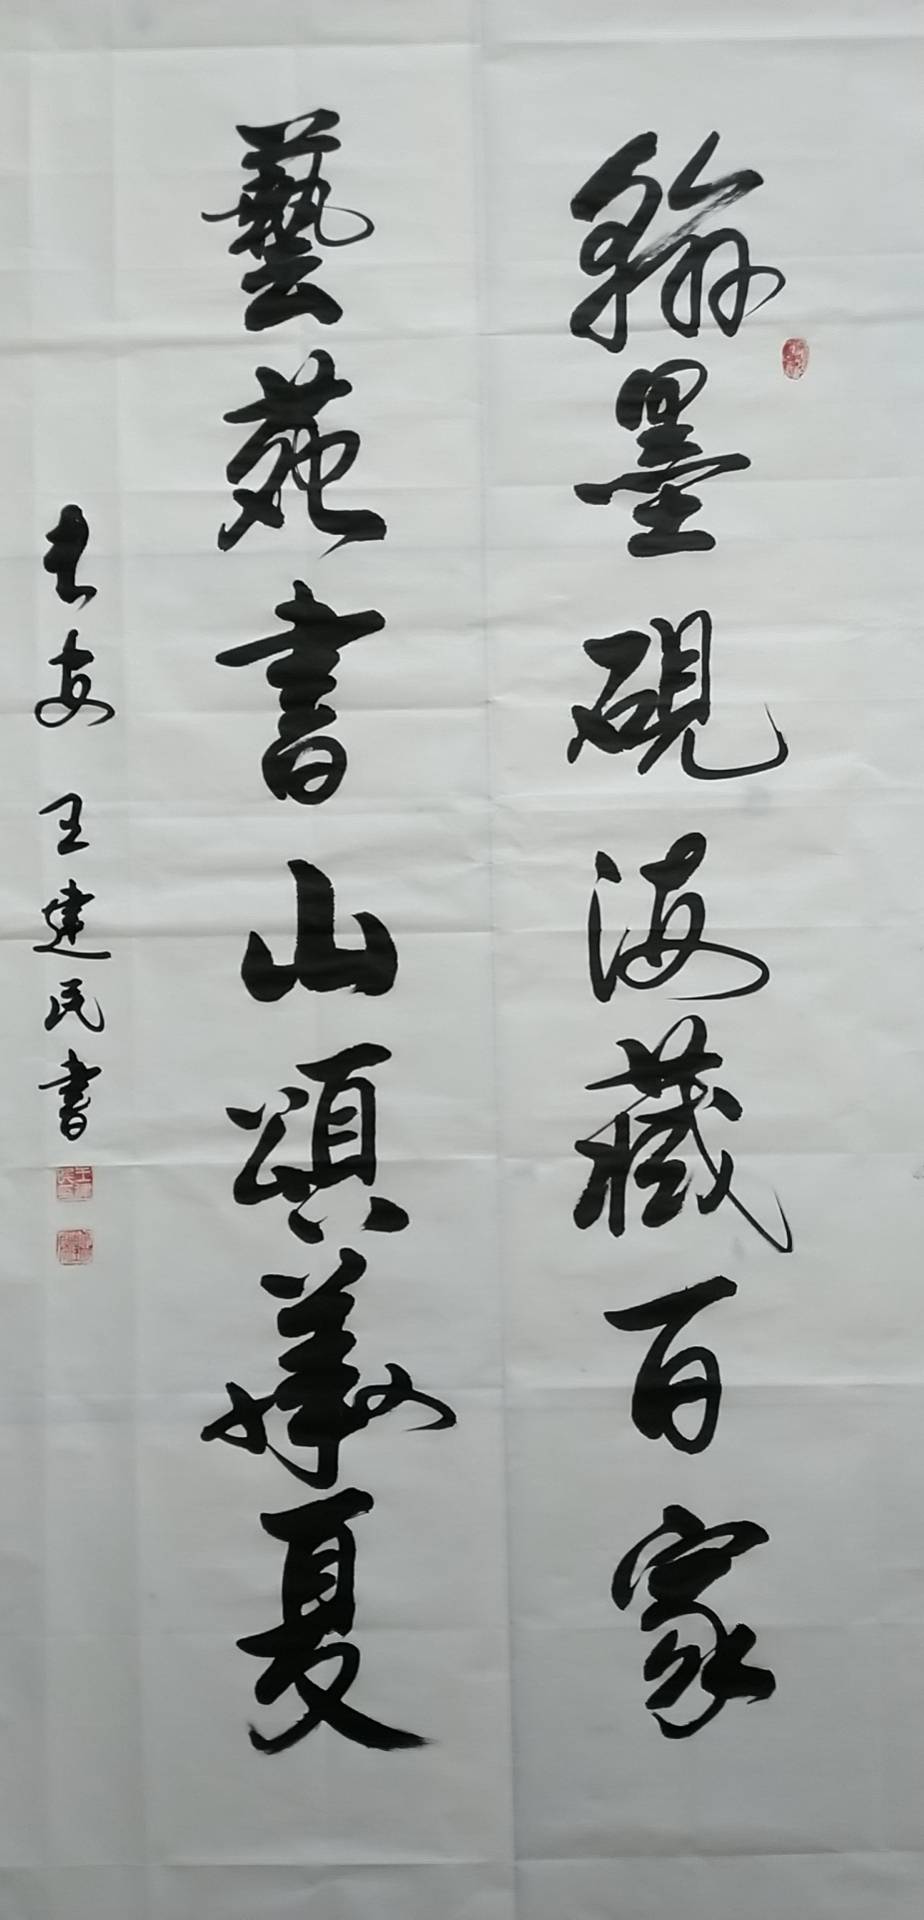 翰墨硯海藏百家
藝苑書山頌華夏
长安 王建民書